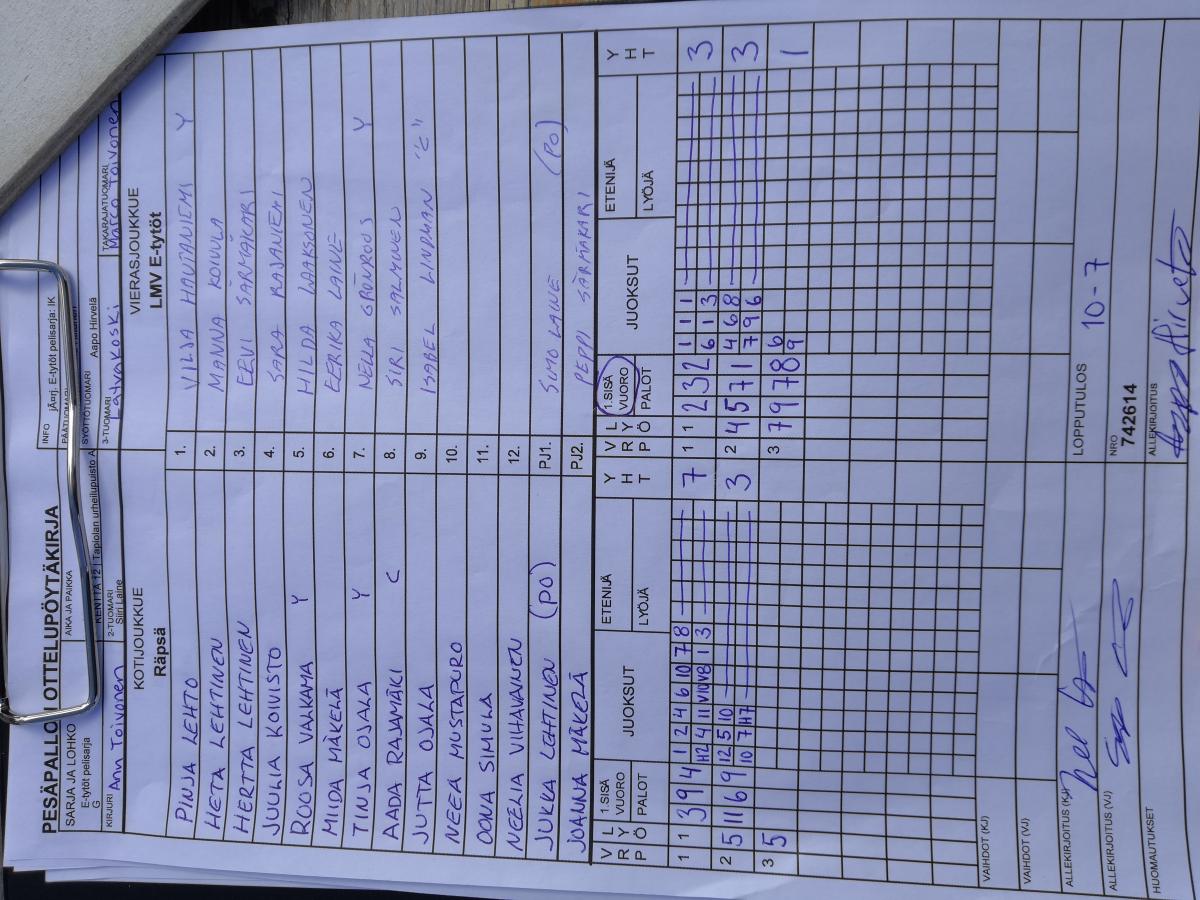 PESÄPALLO OTTELUPÖYTÄKIRJA
SARJA JA LOHKO
E-tytöt pelisarja
G
AIKA JA PAIKKA
KENTTÄ 12 | Tapiolan urheilupuisto A
INFO jÄorj. E-tytöt pelisarja: IK
PÄÄTUOMARI
SYÖTTÖTUOMARI Aapo Hirvelä
KIRJURI Ann Toivonen
2-TUOMARI
Siiri Laine
3-TUOMARI
TAKARAJATUOMARI
Marco Toivonen
KOTIJOUKKUE
Räpsä
VIERASJOUKKUE
LMV E-tytöt
PINJA LEHTO 1. VILJA HAUTANIEMI Y
HETA LEHTINEN 2. MANNA KOIVULA
HERTTA LEHTINEN 3. EEVI SÄRMÄKARI
JUULIA KOIVISTO 4. SARA RAJANIEMI
ROOSA VALKAMA Y 5. HILDA LAAKSONEN
MIIDA MÄKELÄ 6. EERIKA LAINE
TINJA OJALA Y 7. NELLA GRÖNROOS Y
AADA RAJAMÄKI C 8. SIRI SALMINEN
JUTTA OJALA 9. ISABEL LINDMAN "C"
NEEA MUSTAPURO 10.
OONA SIMULA 11.
NEELIA VIHAVAINEN 12.
JUKKA LEHTINEN (PO) PJ1. SUMO LAINE (PO)
JOANNA MÄKELÄ PJ2. PEPPI SÄRMÄKARI
V R P L Y Ö 1.SISÄ VUORO PALOT JUOKSUT ETENIJÄ LYÖJÄ Y H T
V R P L Y Ö 1.SISÄ VUORO PALOT JUOKSUT ETENIJÄ LYÖJÄ Y H T
1 1 3 9 4 1 2 4 6 10 7 8 7
H2 4 11 V10 V8 1 3
2 5 11 6 9 12 5 10 3
10 7 H7
3 5
1 1 2 3 2 1 1 1 3
6 1 3
2 4 5 7 1 4 6 8 3
7 9 6
3 7 9 7 8 6 1
9
VAIHDOT (KJ)
VAIHDOT (VJ)
ALLEKIRJOITUS (KJ)
LOPPUTULOS 10-7
ALLEKIRJOITUS (VJ)
NRO
742614
HUOMAUTUKSET
ALLEKIRJOITUS